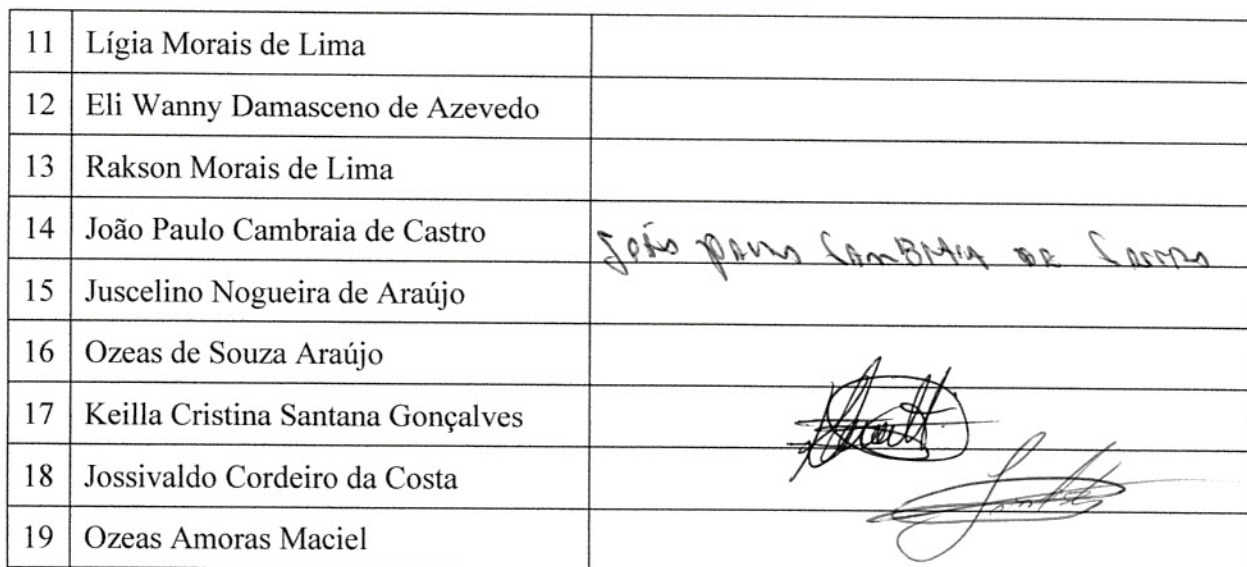 11 Lígia Morais de Lima
12 Eli Wanny Damasceno de Azevedo
13 Rakson Morais de Lima
14 João Paulo Cambraia de Castro João Paulo CAMBRAIA DE CASTRO
15 Juscelino Nogueira de Araújo
16 Ozeas de Souza Araújo
17 Keilla Cristina Santana Gonçalves
18 Jossivaldo Cordeiro da Costa
19 Ozeas Amoras Maciel